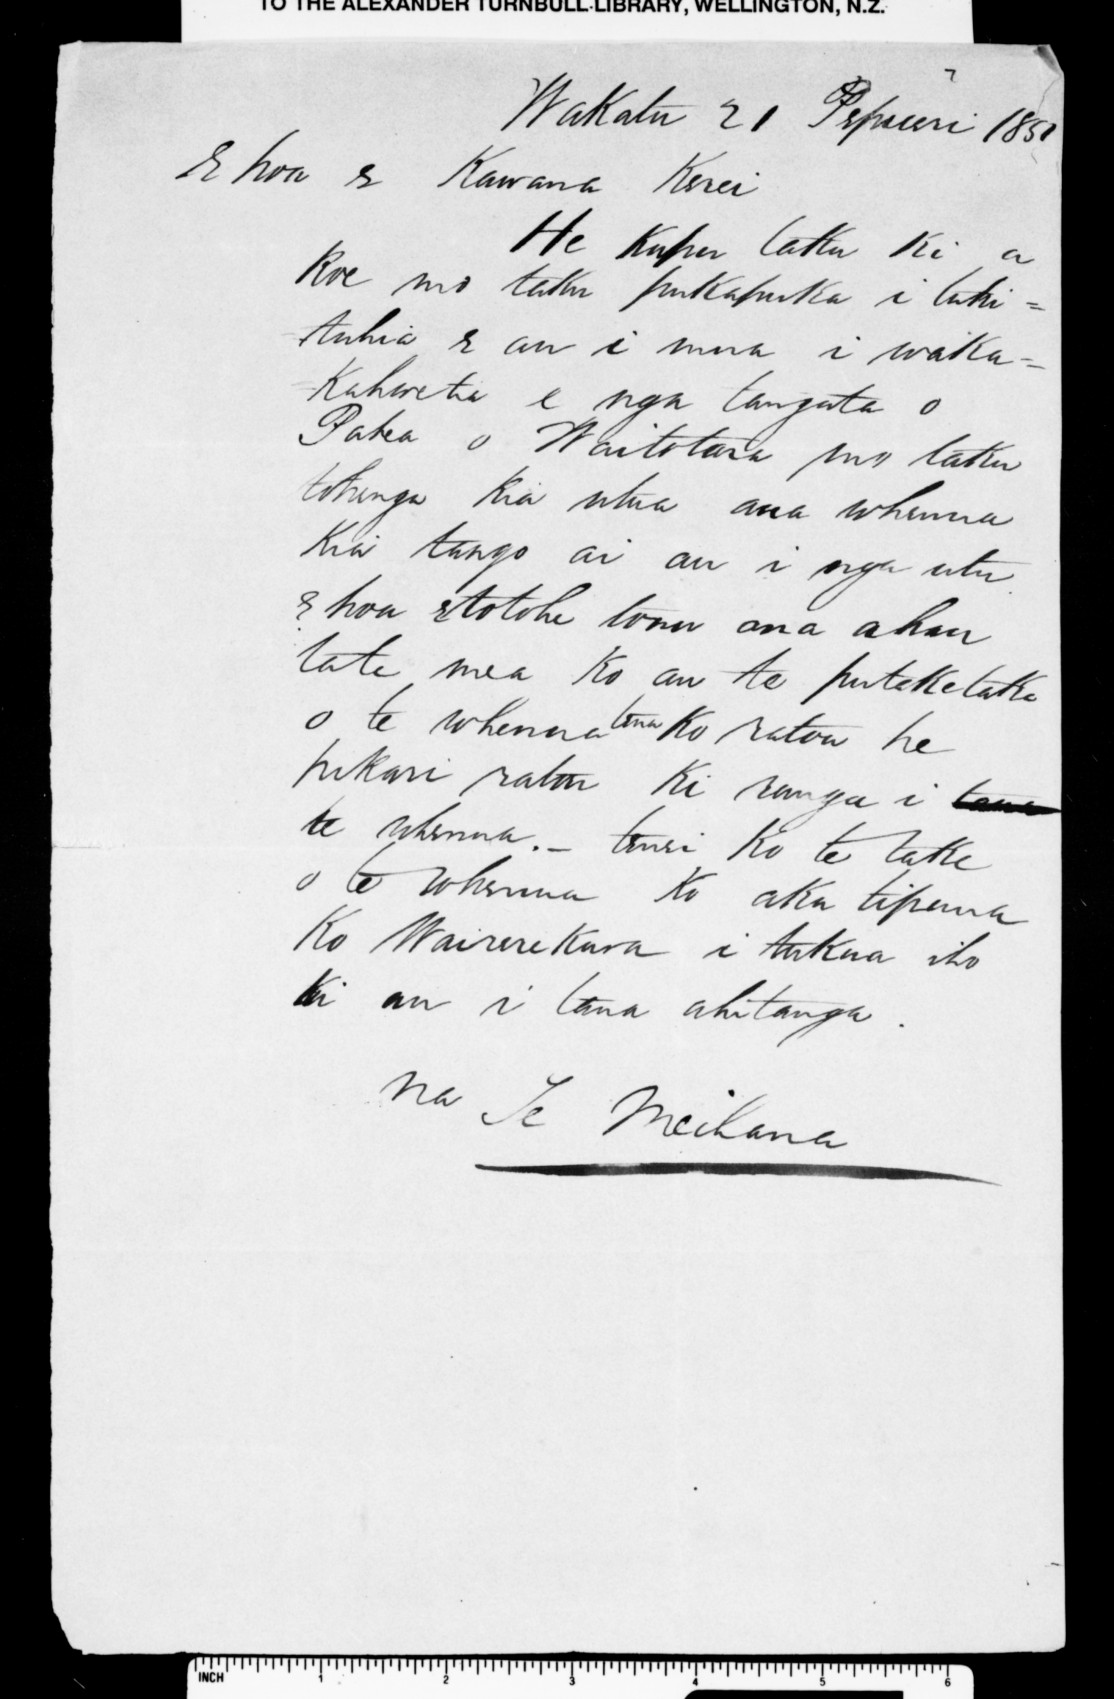 TO THE ALEXANDER TURNBULL LIBRARY, WELLINGTON, N.Z.
7
Wakatu 21 Pepueri 1851
E hoa e Kawana Kerei
He kupu taku ki a
koe mo taku pukapuka i tuhi=
=tuhia e au i mua i waka=
=kahoretia e nga tangata o
Patea o Waitotara mo taku
tohenga kia utua ana whenua
kia tango ai au i nga utu
E hoa etotohe tonu ana ahau
ta te mea ko au te putaketake
o te whenua tena ko ratou he
pikari ratou ki runga i
te whenua. – tenei ko te take
o te whenua ko aku tipuna
ko Wairerekura i tukua iho
ki au i tana ahitanga.
na Te Meihana
INCH 1 2 3 4 5 6